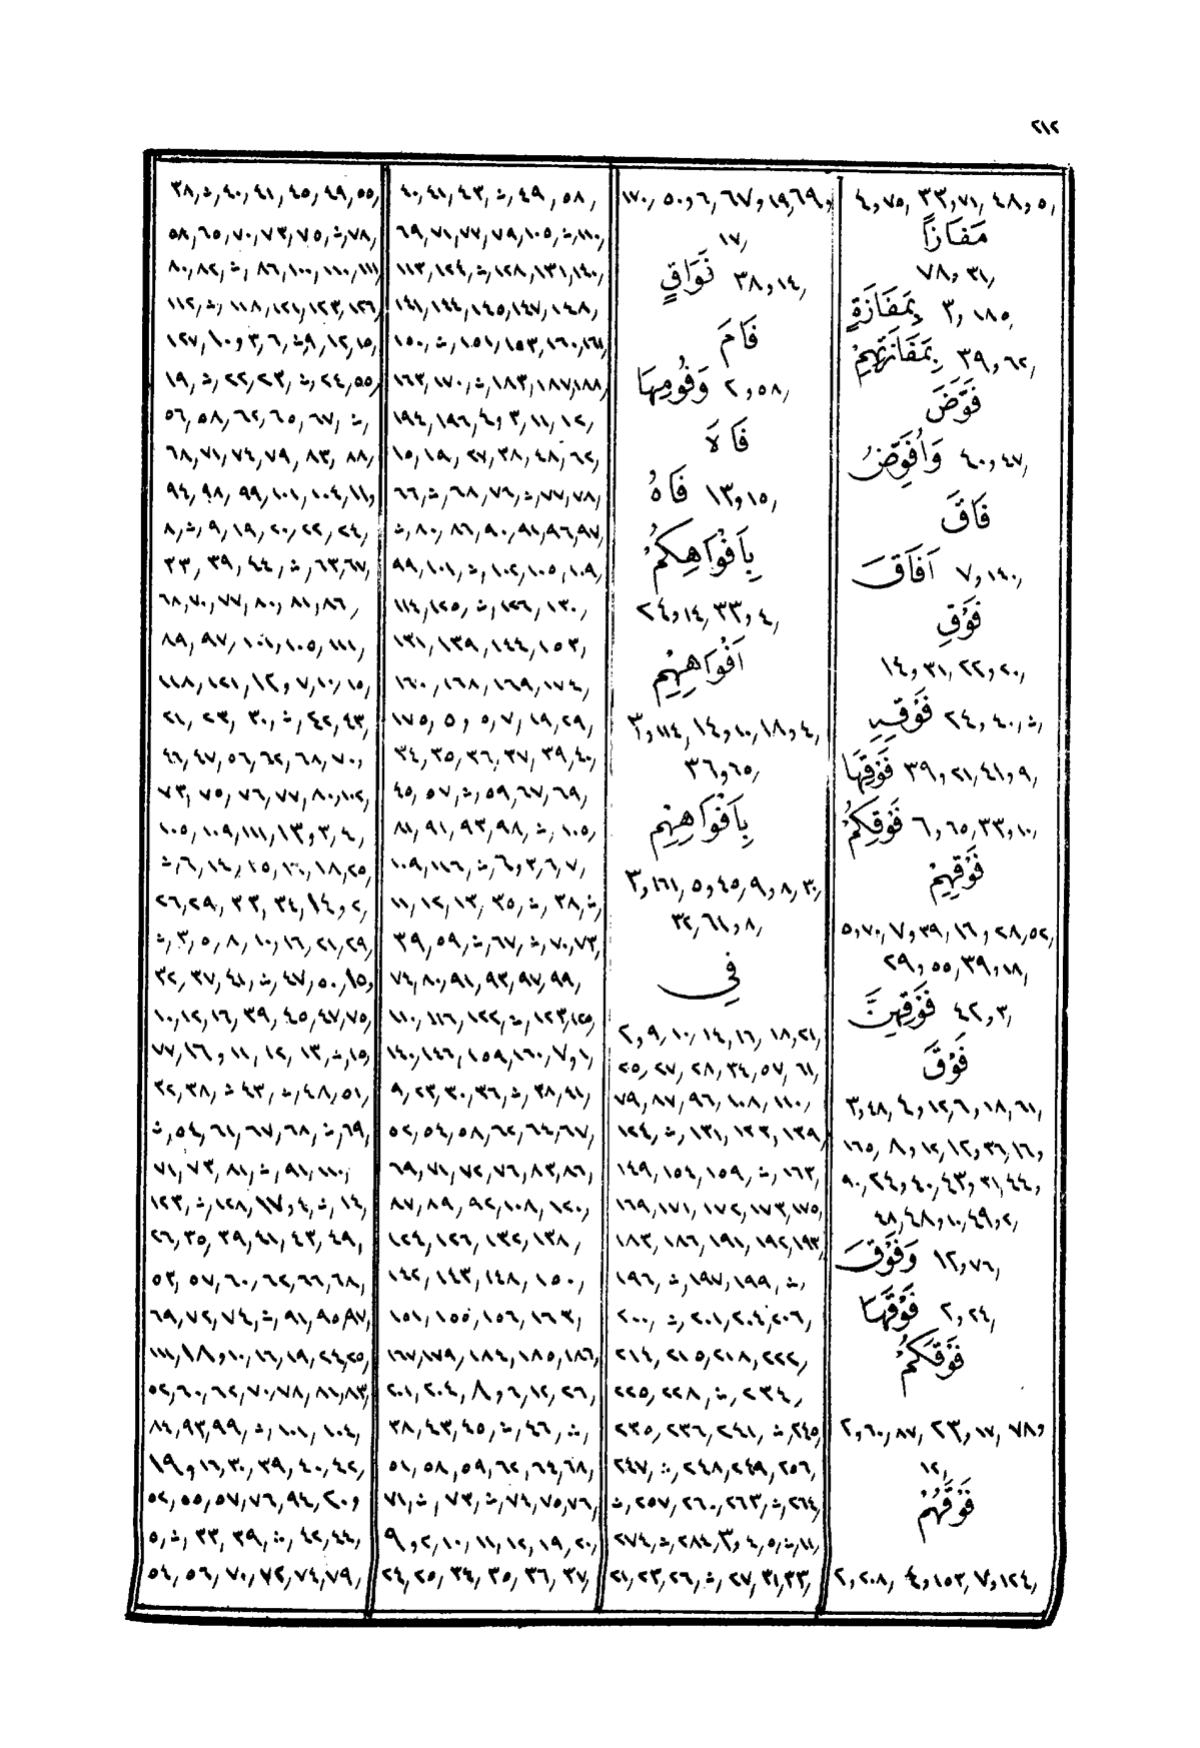 ٢١٢
٤,٧٥, ٣٣,٧١, ٤٨,٥,
مَفَازًا
٧٨,٣١,
بِمَفَازَةٍ ٣,١٨٥,
بِمَفَازَتِهِمْ ٣٩,٦٢,
فَوَّضَ
وَأُفَوِّضُ ٤٠,٤٧,
فَاقَ
اَفَاقَ ٧,١٤٠,
فَوْقِ
١٤,٣١,٢٢,٢٠,
فَوْقِهِ ٢٤,٤٠,ث,
فَوْقِهَا ٣٩,٢١,٤١,٩,
فَوْقِكُمْ ٦,٦٥,٣٣,١٠,
فَوْقِهِمْ
٥,٧٠,٧,٣٩,١٦,٢٨,٥٢,
٢٩,٥٥,٣٩,١٨,
فَوْقِهِنَّ ٤٢,٣,
فَوْقَ
٣,٤٨,٤,١٢,٦,١٨,٦١,
١٦٥,٨,١٢,١٢,٣٦,١٦,
٩٠,٢٤,٤٠,٤٣,٣١,٤٤,
٤٨,٤٨,١٠,٤٩,٢,
وَفَوْقَ ١٢,٧٦,
فَوْقَهَا ٢,٢٤,
فَوْقَكُمْ
٢,٦٠,٨٧, ٢٣,١٧,٧٨,
١٢,
فَوْقَهُمْ
٢,٢٠٨, ٤,١٥٣,٧,١٢٤,
١٧٠,٥٠,٦,٦٧,١٩,٦٩,
١٧,
فَوَاقٍ ٣٨,١٤,
فَامَ
وَفُومِهَا ٢,٥٨,
فَاهَ
فَاهُ ١٣,١٥,
بِاَفْوَاهِكُمْ
٢٤,١٤,٣٣,٤,
اَفْوَاهِهِمْ
٣,١١٤,١٤,١٠,١٨,٤,
٣٦,٦٥,
بِاَفْوَاهِهِمْ
٣,١٦١,٥,٤٥,٩,٨,٣٠,
٣٢,٦١,٨,
فِي
٢,٩,١٠,١٤,١٦,١٨,٢١,
٢٥,٢٧,٢٨,٣٤,٥٧,٦١,
٧٩,٨٧,٩٦,١٠٨,١١٠,
١٢٤,ث,١٣١,١٣٣,١٣٩,
١٤٩,١٥٤,١٥٩,ث,١٦٣,
١٦٩,١٧١,١٧٢,١٧٣,١٧٥,
١٨٣,١٨٦,١٩١,١٩٢,١٩٣,
١٩٦,ث,١٩٧,١٩٩,ث,
٢٠٠,ث,٢٠١,٢٠٤,٢٠٦,
٢١٤,٢١٥,٢١٨,٢٢٢,
٢٢٥,٢٢٨,ث,٢٣٤,
٢٣٥,٢٣٦,٢٤١,ث,٢٤٥,
٢٤٧,ث,٢٤٨,٢٤٩,٢٥٦,
ث,٢٥٧,٢٦٠,٢٦٣,ث,٢٦٤,
٢٧٤,ث,٢٨٤,٣,٤,٥,ث,١١,
٢١,٢٣,٢٦,ث,٢٧,٣١,٣٣,
٤٠,٤١,٤٣,ث,٤٩,٥٨,
٦٩,٧١,٧٧,٧٩,١٠٥,ث,١١٠,
١١٣,١٢٤,ث,١٢٨,١٣١,١٤٠,
١٤١,١٤٤,١٤٥,١٤٧,١٤٨,
١٥٠,ث,١٥١,١٥٣,١٦٠,١٦١,
١٦٣,١٧٠,ث,١٨٣,١٨٧,١٨٨,
١٩٤,١٩٦,٤,٣,١١,١٢,
١٥,١٩,٢٧,٣٨,٤٨,٦٢,
٦٦,ث,٦٨,٧٦,ث,٧٧,٧٨,
ث,٨٠,٨٦,٩٠,٩١,٩٦,٩٧,
٩٩,١٠١,ث,١٠٢,١٠٥,١٠٩,
١١٤,١٢٥,ث,١٢٦,١٣٠,
١٣١,١٣٩,١٤٤,١٥٣,
١٦٠,١٦٨,١٦٩,١٧٤,
١٧٥,٥,٥,٧,١٩,٢٩,
٣٤,٣٥,٣٦,٣٧,٣٩,٤٠,
٤٥,٥٧,ث,٥٩,٦٧,٦٩,
٨١,٩١,٩٣,٩٨,ث,١٠٥,
١٠٩,١١٦,ث,٦,٣,٦,٧,
١١,١٢,١٣,٣٥,ث,٣٨,ث,
٣٩,٥٩,ث,٦٧,ث,٧٠,٧٣,
٧٤,٨٠,٩١,٩٣,٩٧,٩٩,
١١٠,١١٦,١٢٢,ث,١٢٣,١٢٥,
١٤٠,١٤٦,١٥٩,١٦٠,٧,١,
٩,٢٣,٣٠,٣٦,ث,٣٨,٤١,
٥٢,٥٤,٥٨,٦٢,٦٤,٦٧,
٦٩,٧١,٧٢,٧٦,٨٣,٨٦,
٨٧,٨٩,٩٢,١٠٨,١٢٠,
١٢٤,١٢٦,١٣٢,١٣٨,
١٤٢,١٤٣,١٤٨,١٥٠,
١٥١,١٥٥,١٥٦,١٦٣,
١٦٧,١٧٩,١٨٤,١٨٥,١٨٦,
٢٠١,٢٠٤,٨,٦,١٢,٢٦,
٣٨,٤٣,٤٥,ث,٤٦,ث,
٥١,٥٨,٥٩,٦٢,٦٤,٦٨,
٧١,ث,٧٣,ث,٧٤,٧٥,٧٦,
٩,٢,١٠,١١,١٢,١٩,٢٠,
٢٤,٢٥,٣٤,٣٥,٣٦,٣٧,
٣٨,ث,٤٠,٤١,٤٥,٤٩,٥٥,
٥٨,٦٥,٧٠,٧٣,٧٥,ث,٧٨,
٨٠,٨٢,ث,٨٦,١٠٠,١١٠,١١١,
١١٢,ث,١١٨,١٢١,١٢٣,١٢٦,
١٢٧,١٠,٣,٦,ث,٩,١٢,١٥,
١٩,ث,٢٢,٢٣,ث,٢٤,٥٥,
٥٦,٥٨,٦٢,٦٥,٦٧,ث,
٦٨,٧١,٧٤,٧٩,٨٣,٨٨,
٩٤,٩٨,٩٩,١٠١,١٠٤,١١,
٨,ث,٩,١٩,٢٠,٢٢,٢٤,
٣٣,٣٩,٤٤,ث,٦٣,٦٧,
٦٨,٧٠,٧٧,٨٠,٨١,٨٦,
٨٩,٩٧,١٠١,١٠٥,١١١,
١١٨,١٢١,١٢,٧,١٠,١٥,
٢١,٢٣,٣٠,ث,٤٢,٤٣,
٤٦,٤٧,٥٦,٦٢,٦٨,٧٠,
٧٣,٧٥,٧٦,٧٧,٨٠,١٠٢,
١٠٥,١٠٩,١١١,١٣,٣,٤,
ث,٦,١٤,١٥,١٧,١٨,٢٥,
٢٦,٢٩,٣٣,٣٤,١٤,٢,
ث,٣,٥,٨,١٠,١٦,٢١,٢٩,
٣٢,٣٧,٤١,ث,٤٧,٥٠,١٥,
١٠,١٢,١٦,٣٩,٤٥,٤٧,٧٥,
٧٧,١٦,١١,١٢,١٣,ث,١٥,
٣٢,٣٨,ث ٤٣,ث,٤٨,٥١,
ث,٥٤,٦١,٦٧,٦٨,ث,٦٩,
٧١,٧٣,٨١,ث,٩١,١١٠,
١٢٣,١٢٨,١٧,٤,ث,١٤,
٢٦,٣٥,٣٩,٤١,٤٣,٤٩,
٥٣,٥٧,٦٠,٦٢,٦٦,٦٨,
٦٩,٧٢,٧٤,ث,٩١,٩٥,٩٧,
١١١,١٨,١٠,١٦,١٩,٢٤,٢٥,
٥٢,٦٠,٦٢,٧٠,٧٨,٨١,٨٣,
٨٤,٩٣,٩٩,ث,١٠١,١٠٤,
١٩,١٦,٣٠,٣٩,٤٠,٤٢,
٥٢,٥٥,٥٧,٧٦,٩٤,٢٠,
٥,ث,٣٣,٣٩,ث,٤٢,٤٤,
٥٤,٥٦,٧٠,٧٢,٧٤,٧٩,